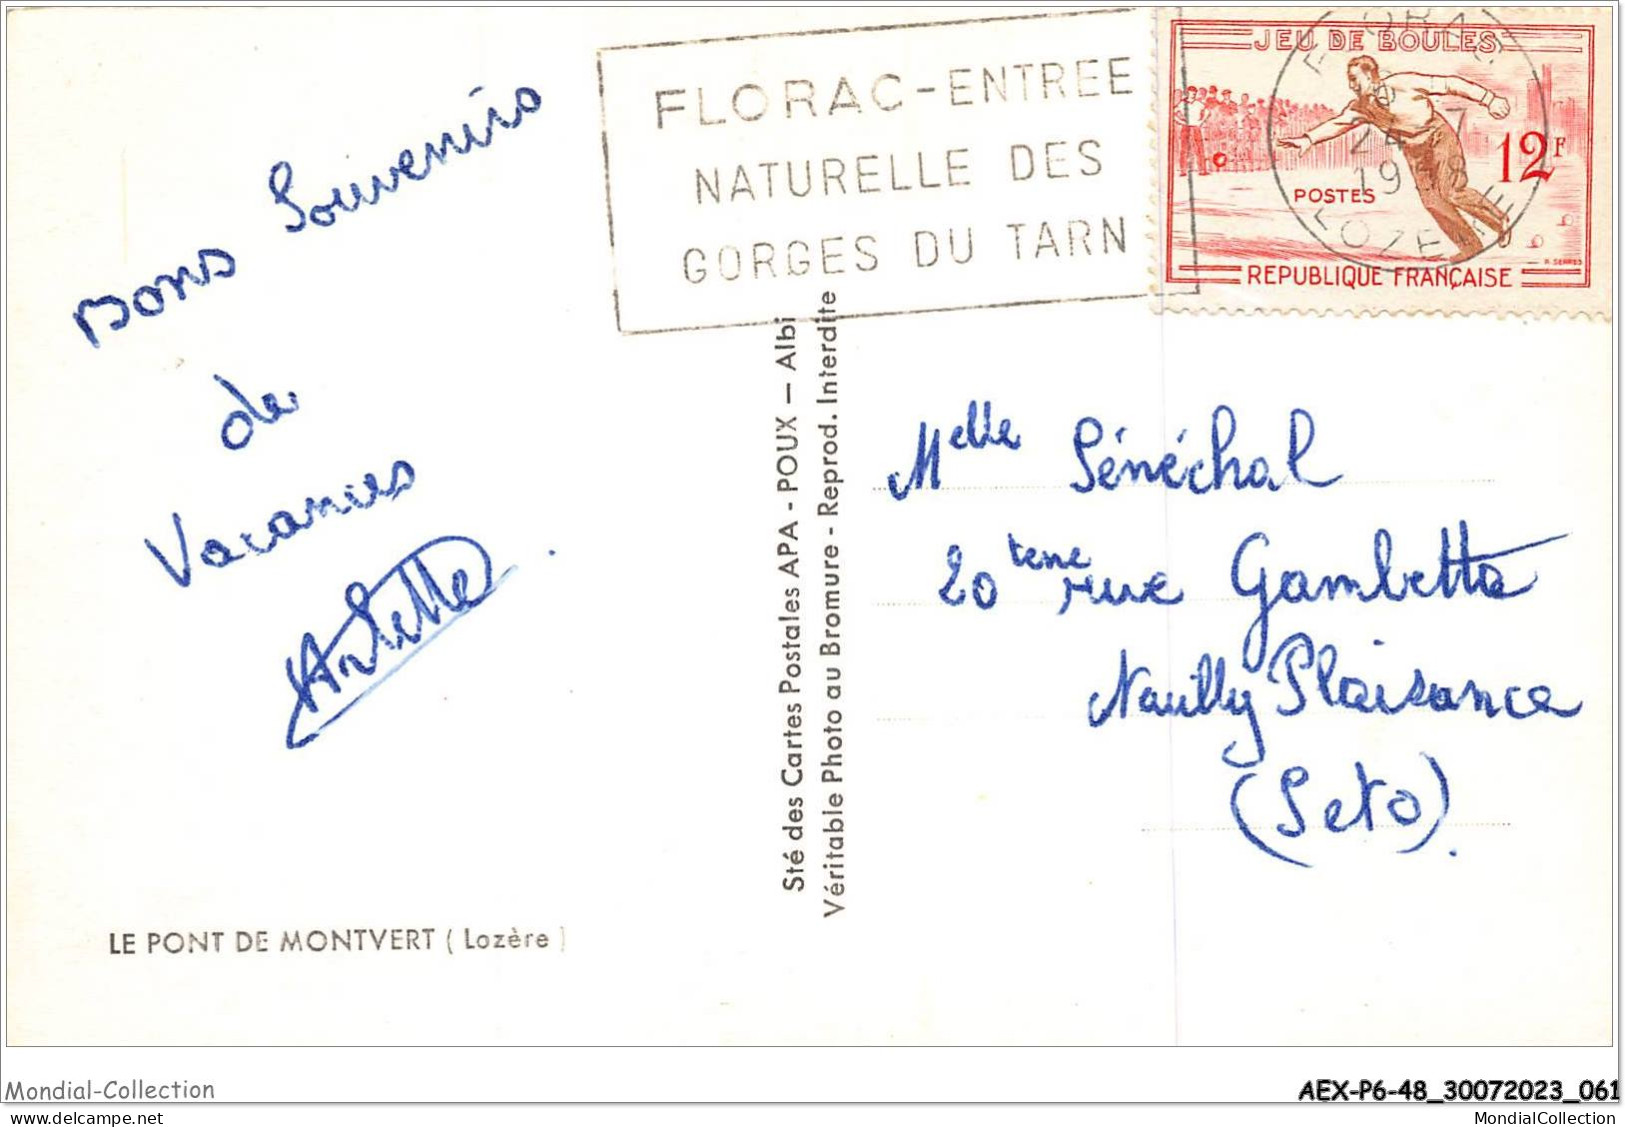 Bons Souvenirs
de
Vacances
Arlette
LE PONT DE MONTVERT ( Lozère )
Sté des Cartes Postales APA - POUX — Albi
Véritable Photo au Bromure - Reprod. Interdite
FLORAC-ENTREE
NATURELLE DES
GORGES DU TARN
JEU DE BOULES
12F
POSTES
REPUBLIQUE FRANÇAISE
FLORAC
24 - 7
1958
LOZERE
Melle Sénéchal
20 rue Gambetta
Neuilly Plaisance
(Seto).
Mondial-Collection
www.delcampe.net
AEX-P6-48_30072023_061
MondialCollection